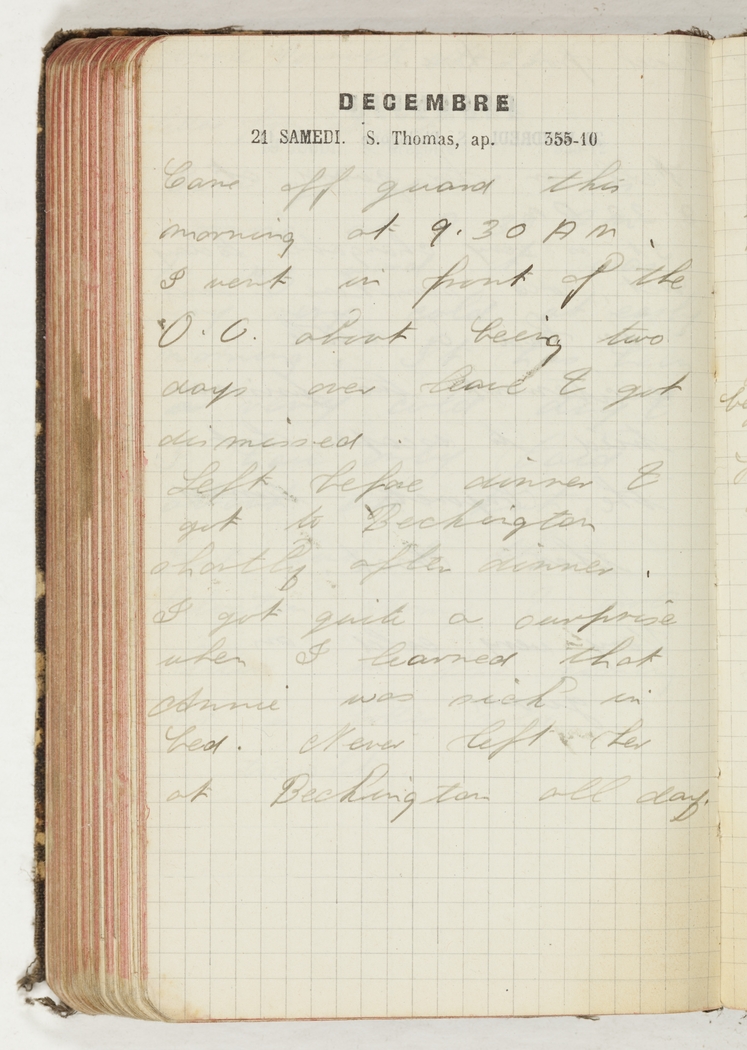 DECEMBRE
21 SAMEDI. S. Thomas, ap. 355-10
Came off guard this
morning at 9.30 A M.
I went in front of the
O.C. about being two
days over leave & got
dismissed.
Left before dinner &
got to Beckington
shortly after dinner.
I got quite a surprise
when I learned that
Annie was sick in
bed. Never left her
at Beckington all day.